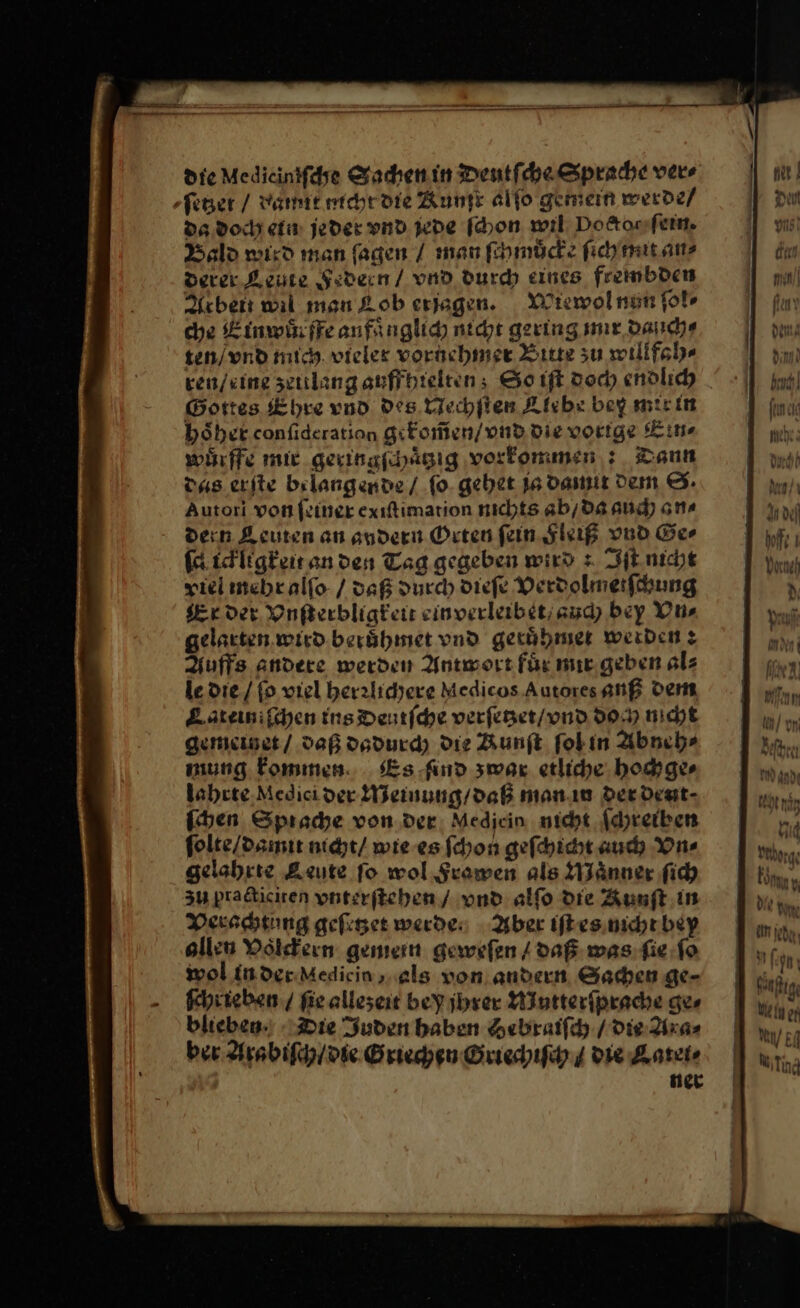 die Medicinische Sachen in Deutsche Sprache ver⸗
setzet / damit nicht die Kunst also gemein werde/
da doch ein jeder vnd jede schon wil Doctor sein.
Bald wird man sagen / man schmücke sich mit an⸗
derer Leute Federn / vnd durch eines frembden
Arbeit wil man Lob erjagen. Wiewol nun sol⸗
che Einwürffe anfänglich nicht gering mir dauch⸗
ten/vnd mich vieler vornehmer Bitte zu willfah⸗
ren/eine zeitlang auffhielten; So ist doch endlich
Gottes Ehre vnd des Nechsten Liebe bey mir in
höher consideration gekom̃en/vnd die vorige Ein⸗
würffe mir geringschätzig vorkommen : Dann
das erste belangende / so gehet ja damit dem S.
Autori von seiner existimation nichts ab/da auch an⸗
dern Leuten an andern Orten sein Fleiß vnd Ge⸗
schickligkeit an den Tag gegeben wird : Ist nicht
viel mehr also / daß durch diese Verdolmetschung
Er der Vnsterbligkeit einverleibet/auch bey Vn⸗
gelarten wird berühmet vnd gerühmet werden :
Auffs andere werden Antwort für mir geben al⸗
le die / so viel herrlichere Medicos Autores auß dem
Lateinischen ins Deutsche versetzet/vnd doch nicht
gemeinet / daß dadurch die Kunst sol in Abneh⸗
mung kommen. Es sind zwar etliche hochge⸗
lahrte Medici der Meinung/daß man in der deut-
schen Sprache von der Medicin nicht schreiben
solte/damit nicht/ wie es schon geschicht auch Vn⸗
gelahrte Leute so wol Frawen als Männer sich
zu practiciren vnterstehen / vnd also die Kunst in
Verachtung gesetzet werde. Aber ist es nicht bey
allen Völckern gemein gewesen / daß was sie so
wol in der Medicin, als von andern Sachen ge-
schrieben / sie allezeit bey jhrer Mutterspräche ge⸗
blieben. Die Juden haben Hebraisch / die Ara⸗
ber Arabisch/die Griechen Griechisch / die Latei⸗
ner